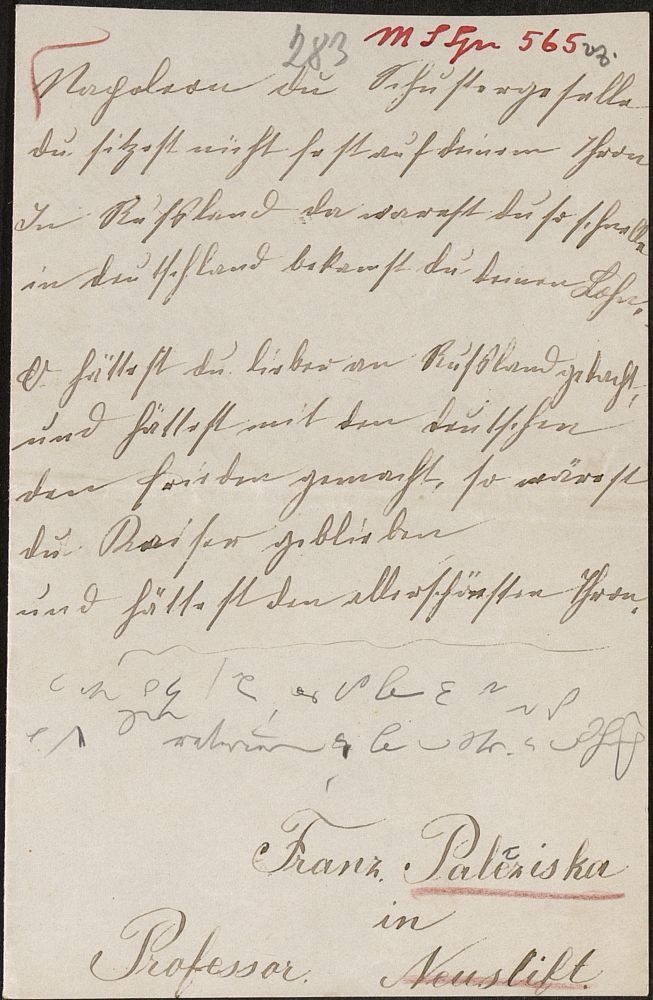 283 M S Spr 565
Napoleon du Schustergeselle
du sitzest nicht fest auf deinem Thron
In Rußland da warest du so schnelle
in deutschland bekamst du deinen Lohn.
O hättest du lieber an Rußland gedacht,
und hättest mit den deutschen
den Frieden gemacht, so wärest
du Kaiser geblieben
und hättest den allerschönsten Thron.
Franz Paleziska
in
Professor. Neustift.